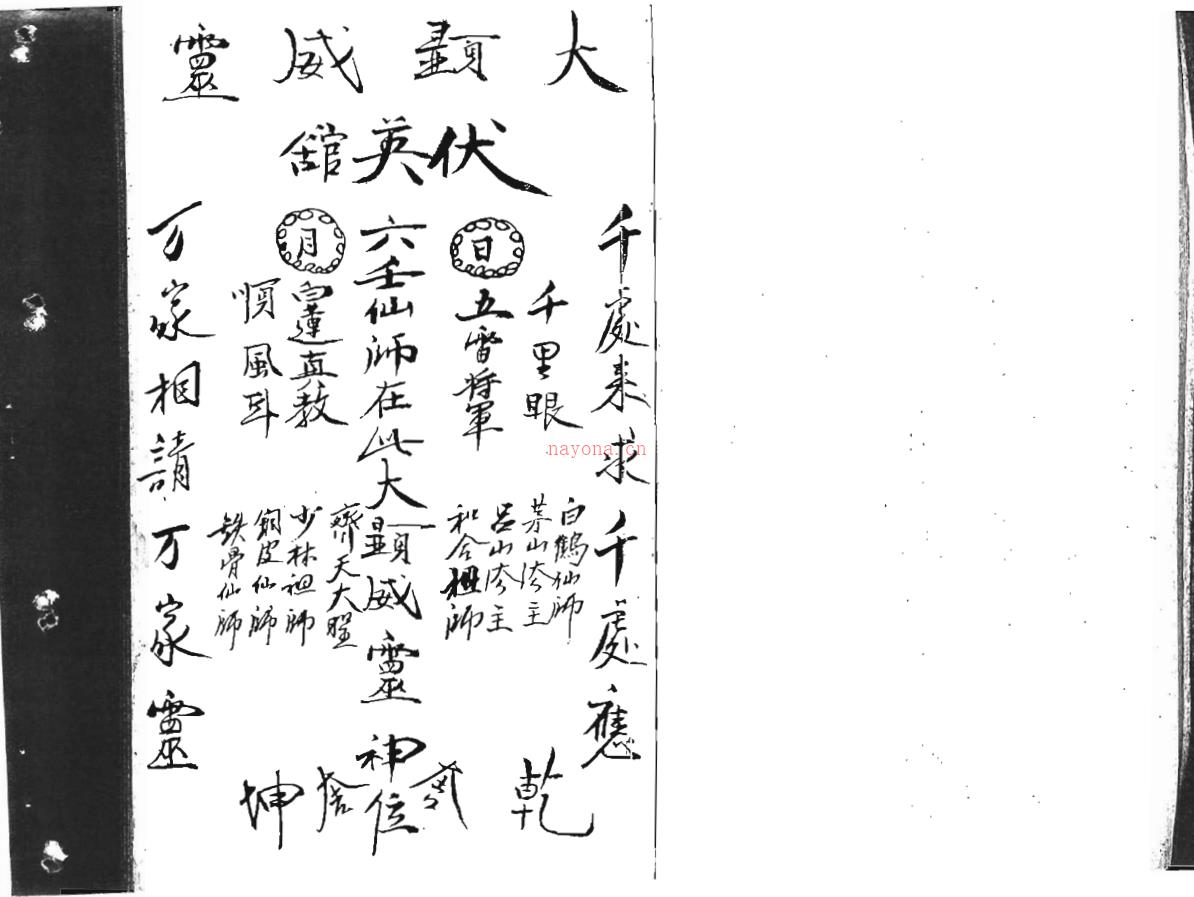 大顕威靈
伏英舘
千處來求千處應
千里眼
日
五雷將軍
六壬仙師在此大顕威靈神位
月
白蓮真教
順風耳
万家相請万家靈
白鶴仙師
茅山法主
呂山法主
和合祖師
齊天大聖
少林祖師
銅皮仙師
铁骨仙師
乾
坤
nayona.cn